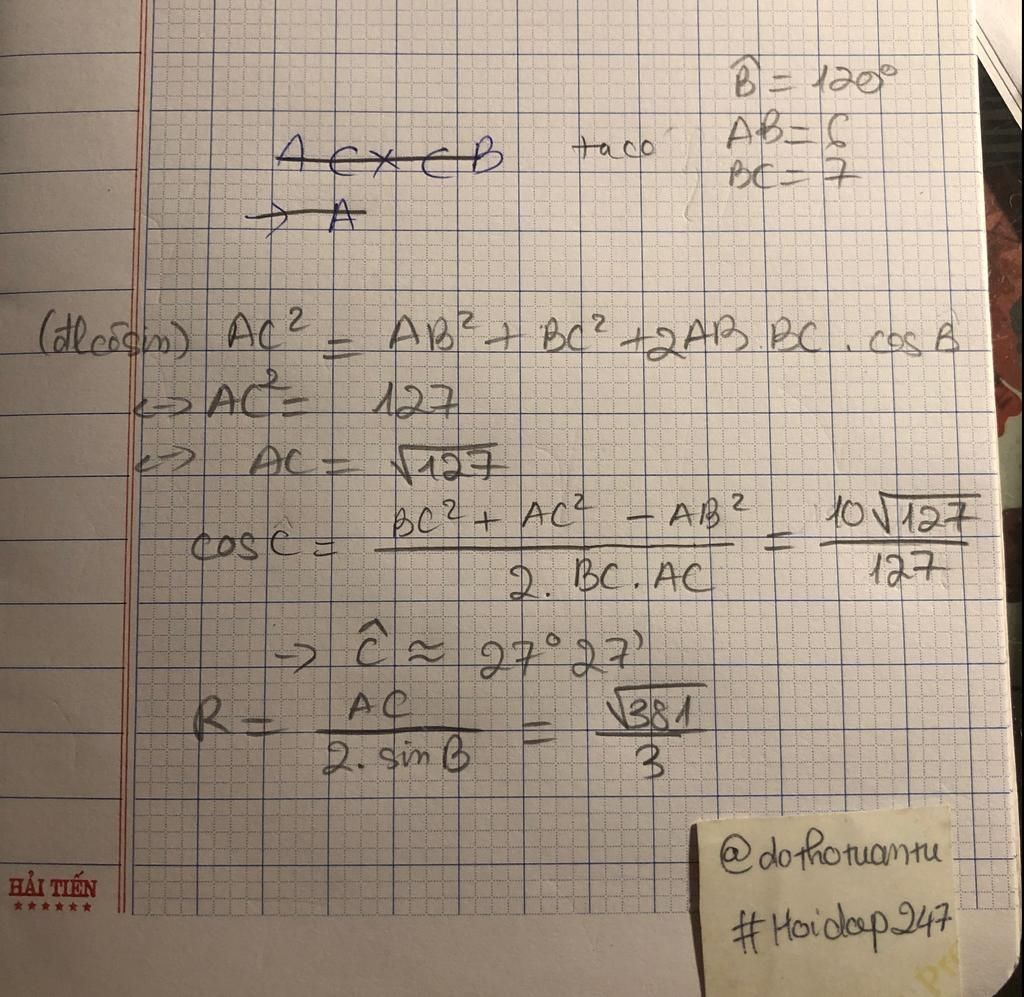 B̂ = 120°
A C x C B ta có AB = 6
BC = 7
→ A
(đlcôsin) AC² = AB² + BC² + 2AB.BC . cos B
<-> AC² = 127
<-> AC = √127
cos C = (BC² + AC² - AB²) / (2. BC. AC) = 10√127 / 127
→ Ĉ ≈ 27° 27'
R = AC / (2. sin B) = √381 / 3
@dothotuantu
HẢI TIẾN
#Hoidap247